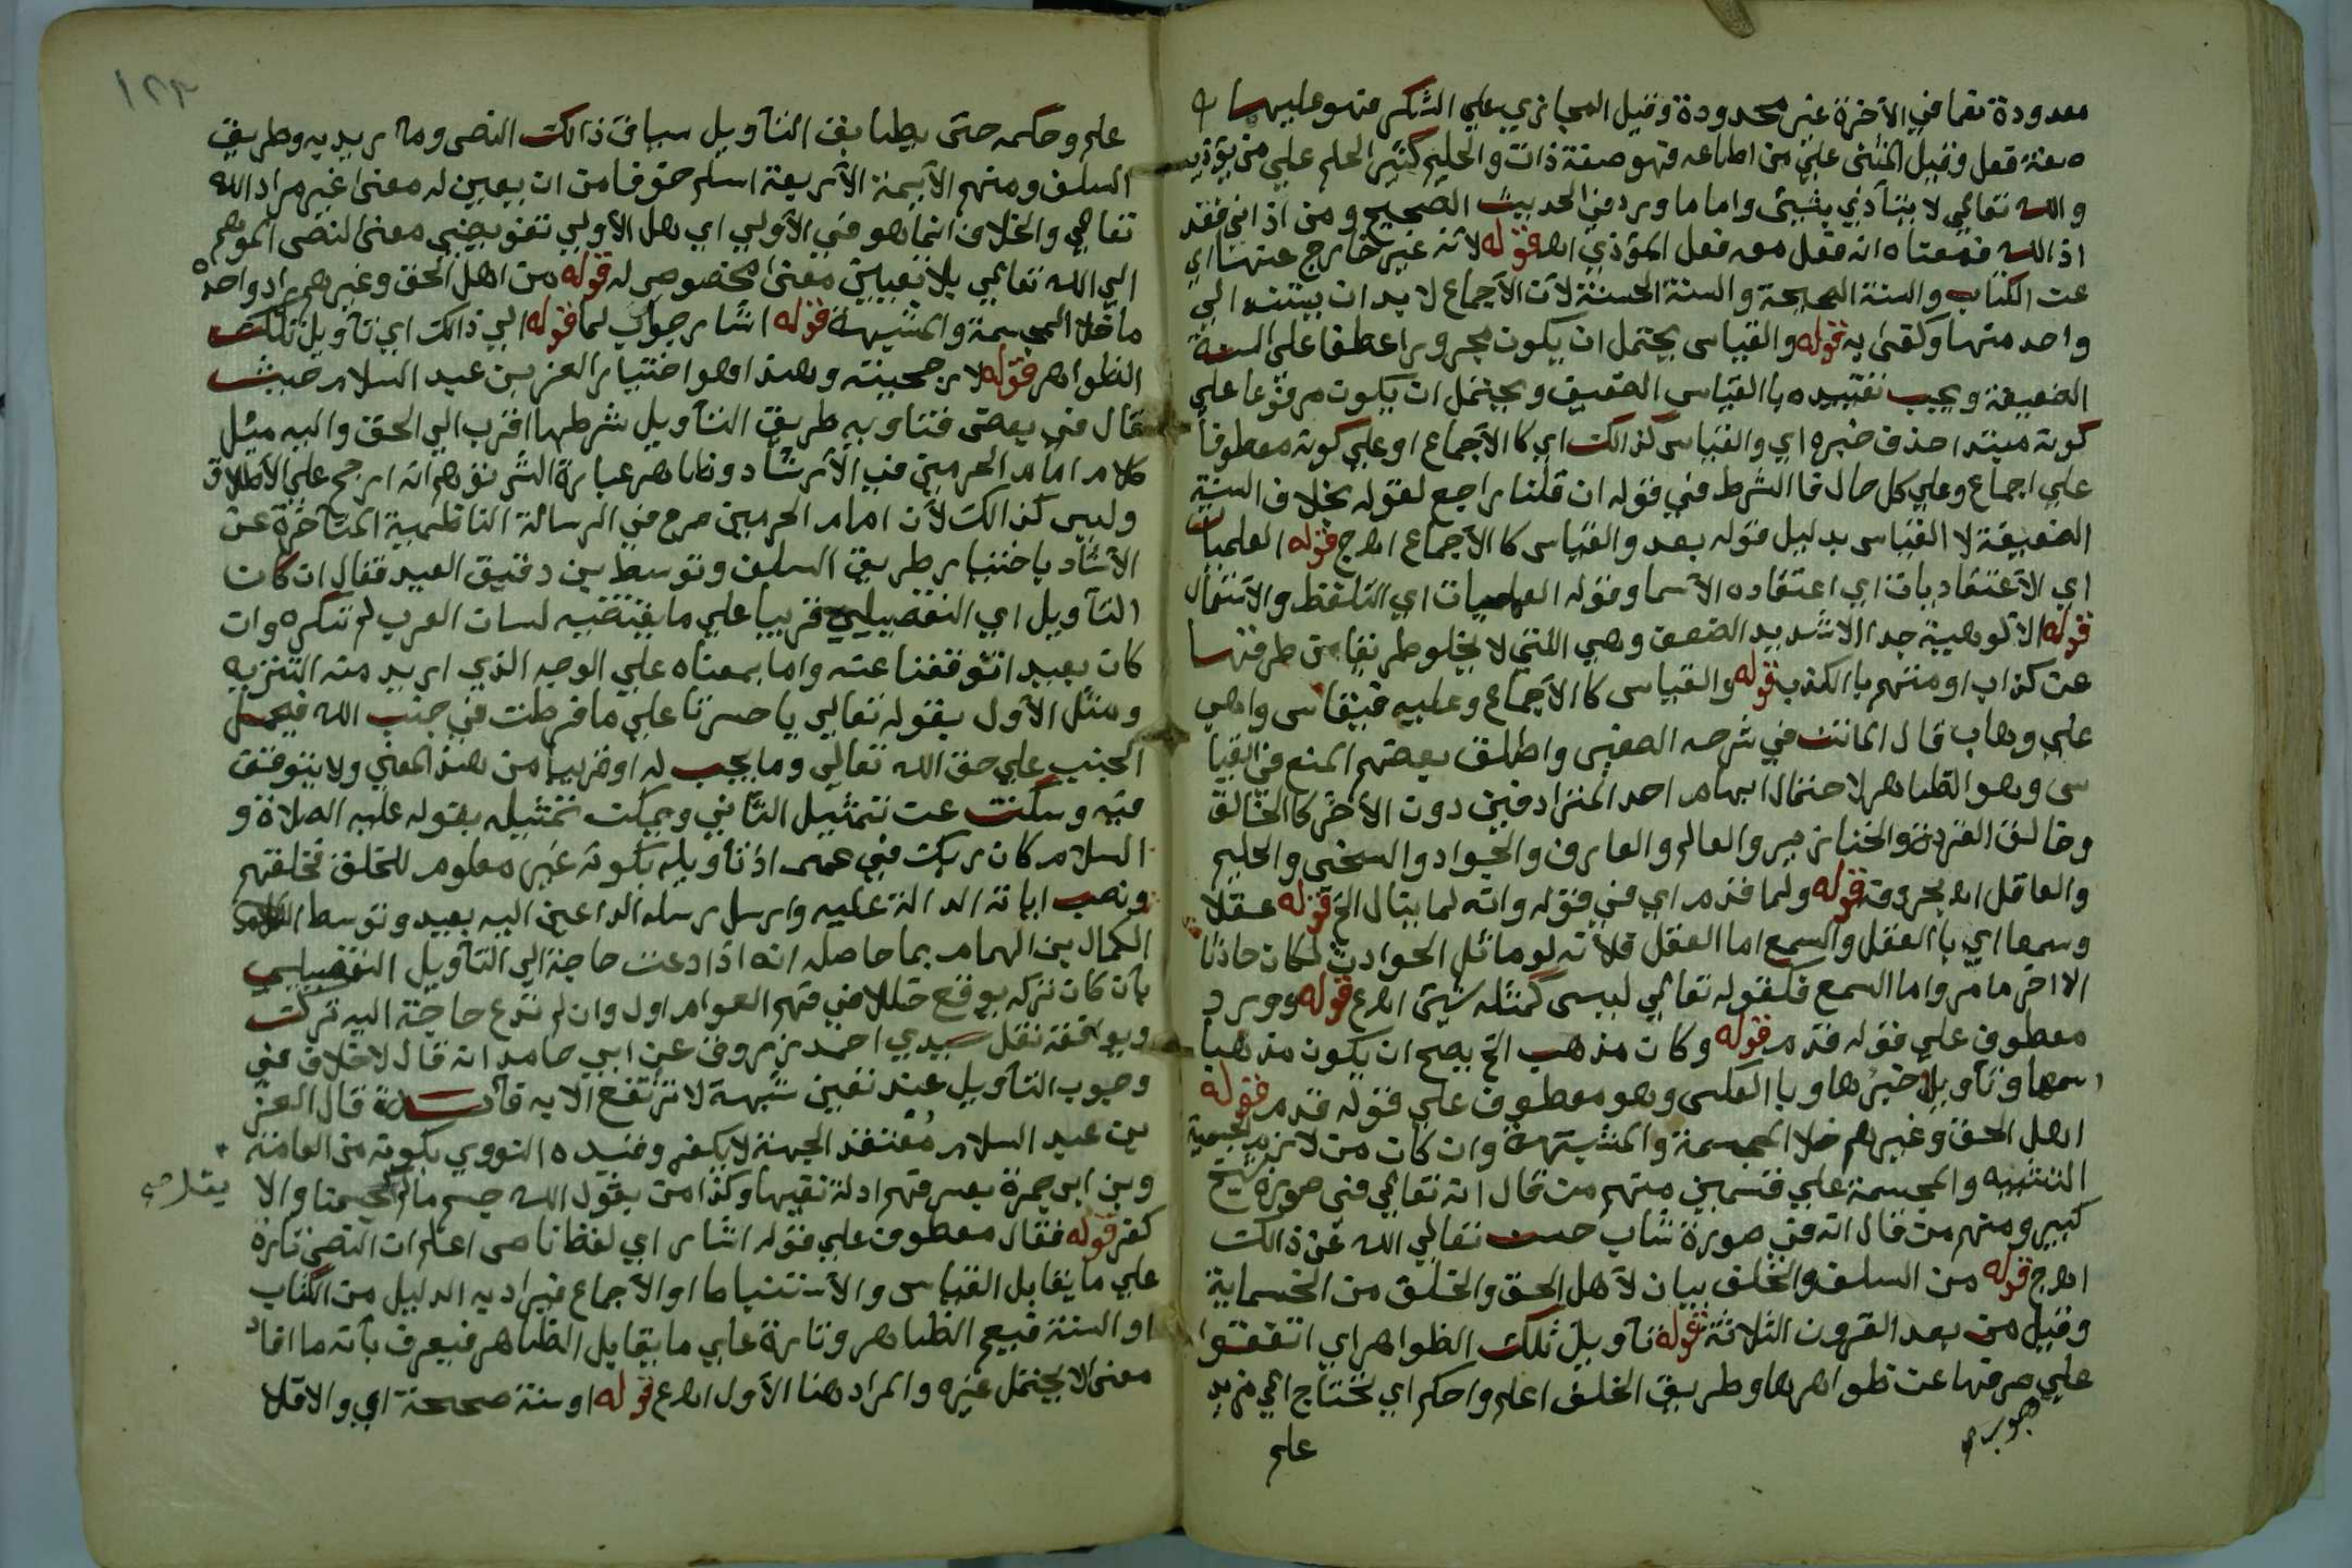 معدودة نعما في الأخرة غير محدودة وقيل المجازي علي الشكر فهو عليهما
صفة فعل وقيل المثني علي من اطاعه فهو صفة ذات والحليم كثير الحلم علي من يؤذيه
والله تعالي لا يتأذي بشيئ واما ما ورد في الحديث الصحيح ومن اذاني فقد
اذا الله فمعناه انه فعل معه فعل المؤذي اهـ قوله لأنه غير خارج عنها اي
عن الكتاب والسنة الصحيحة والسنة الحسنة لأن الأجماع لا بد ان يستند الي
واحد منها وكفي به قوله والقياس يحتمل ان يكون مجرورا عطفا علي السنة
الضعيفة ويجب تقييده با القياس الضعيف ويحتمل ان يكون مرفوعا علي
كونه مبتدا حذف خبره اي والقياس كذالك اي كا الأجماع او علي كونه معطوفا
علي اجماع وعلي كل حال فا الشرط في قوله ان قلنا راجع لقوله بخلاف السنة
الضعيفة لا القياس بدليل قوله بعد والقياس كا الأجماع اهـ ج قوله العلميات
اي الأعتقاد بان اي اعتقاده الأسما وقوله العمليات اي التلفظ والأستعمال
قوله الا لوهية جدا الا شديد الضعف وهي اللتي لا يخلو طريق من طرقها
عن كذاب او متهم با الكذب قوله والقياس كا الأجماع وعليه فيقاس واهي
علي وهاب قال المانت في شرحه الصغير واطلق بعضهم المنع في القيا
س وهو الظاهر لاحتمال ايهام احد المترادفين دون الأخر كا الخالق
وخالق القردة والخنازير والعالم والعارف والجواد والسخي والحليم
والعاقل اهـ بحروفه قوله ولما قدم اي في قوله وانه لما ينال الخ قوله عقلا
وسمعا اي با العقل والسمع اما العقل فلأنه لو ماثل الحوادث لكان حادثا
الا اخر ما مر واما السمع فلقوله تعالي ليس كمثله شيئ اهـ ع قوله وورد
معطوف علي قوله قدم قوله وكان مذهب الخ يصح ان يكون مذهبا
اسمها وتأويل خبرها وبا العكس وهو معطوف علي قوله قدم قوله
اهل الحق وغيرهم خلا المجسمة والمشبهة وان كان من لازم الجسمية
التشبيه والمجسمة علي قسمين منهم من قال انه تعالي في صورة شيخ
كبير ومنهم من قال انه في صورة شاب حسن تعالي الله عن ذالك
اهـ ج قوله من السلف والخلف بيان لأهل الحق والخلف من الخمسماية
وقيل من بعد القرون الثلاثة قوله تأويل تلك الظواهر اي اتفقوا
علي صرفها عن ظواهرها وطريق الخلف اعلم واحكم اي تحتاج الي مزيد
علم
١٢٢
علم وحكمه حتي يطابق التأويل سياق ذالك النص وما يريد به وطريق
السلف ومنهم الأيمة الأربعة اسلم خوفا من ان يعين له معنا غير مراد الله
تعالي والخلاف انما هو في الأولي اي هل الأولي تفويضي معنا النص الموهم
الي الله تعالي بلا تعيين معنا مخصوص له قوله من اهل الحق وغيرهم مراد واحد
ما خلا المجسمة والمشبهة قوله اشار جواب لما قوله الي ذالك اي تأويل تلك
الظواهر قوله لارجحيته وهذا هو اختيار العز بن عبد السلام حيث
قال في بعض فتاويه طريق التأويل بشرطها اقرب الي الحق واليه ميل
كلام امام الحرمين في الأرشاد وظاهر عبارة الشر نوهم انه ارجح علي الأطلاق
وليس كذالك لأن امام الحرمين صرح في الرسالة النا ظمية المتأخرة عن
الأشاد باختيار طريق السلف وتوسط بن دقيق العيد فقال ان كان
التأويل اي التفصيلي قريبا علي ما يقتضيه لسان العرب لم ننكره وان
كان بعيد اتوقفنا عنه واما بمعناه علي الوجه الذي اريد منه التنزيه
ومثل الأول بقوله تعالي يا حسرتا علي ما فرطت في جنب الله فيحمل
الجنب علي حق الله تعالي وما يجب له او قريبا من هذا المعني ولا يتوقف
فيه وسكت عن تمثيل الثاني ويمكن تمثيله بقوله عليه الصلاة و
السلام كان ربك في عمى اذ تأويله بكونه غير معلوم للخلق فخلقهم
ونصب اياته الدالة عليه وارسل رسله الداعين اليه بعيد وتوسط
الكمال بن الهمام بما حاصله انه اذا دعت حاجة الي التأويل التفصيلي
بأن كان نركه يوقع خللا في فهم العوام اول وان لم تدع حاجة اليه تركت
ويوافقه نقل سيدي احمد زروق عن ابي حامد انه قال لا خلاف في
وجوب التأويل عند تعين شبهة لا ترتفع الا به فأيدة قال العز
بن عبد السلام معتقد الجهة لا يكفر وقيده النووي بكونه من العامة
وبن ابي جمرة بعسر فهم ادلة نفيها وكذا من يقول الله جسم ما لم يقل كجسمنا والا
كفر قوله فقال معطوف علي قوله اشار اي لفظ ناص اعلم ان النص تارة
علي ما يقابل القياس والأستنباط او الأجماع فيراد به الدليل من الكتاب
او السنة فيع الظاهر وتارة علي ما يقابل الظاهر فيعرف بأنه ما افاد
معني لا يحتمل غيره والمراد هنا الأول اهـ ع قوله او سنة صحيحة اي والاقلا